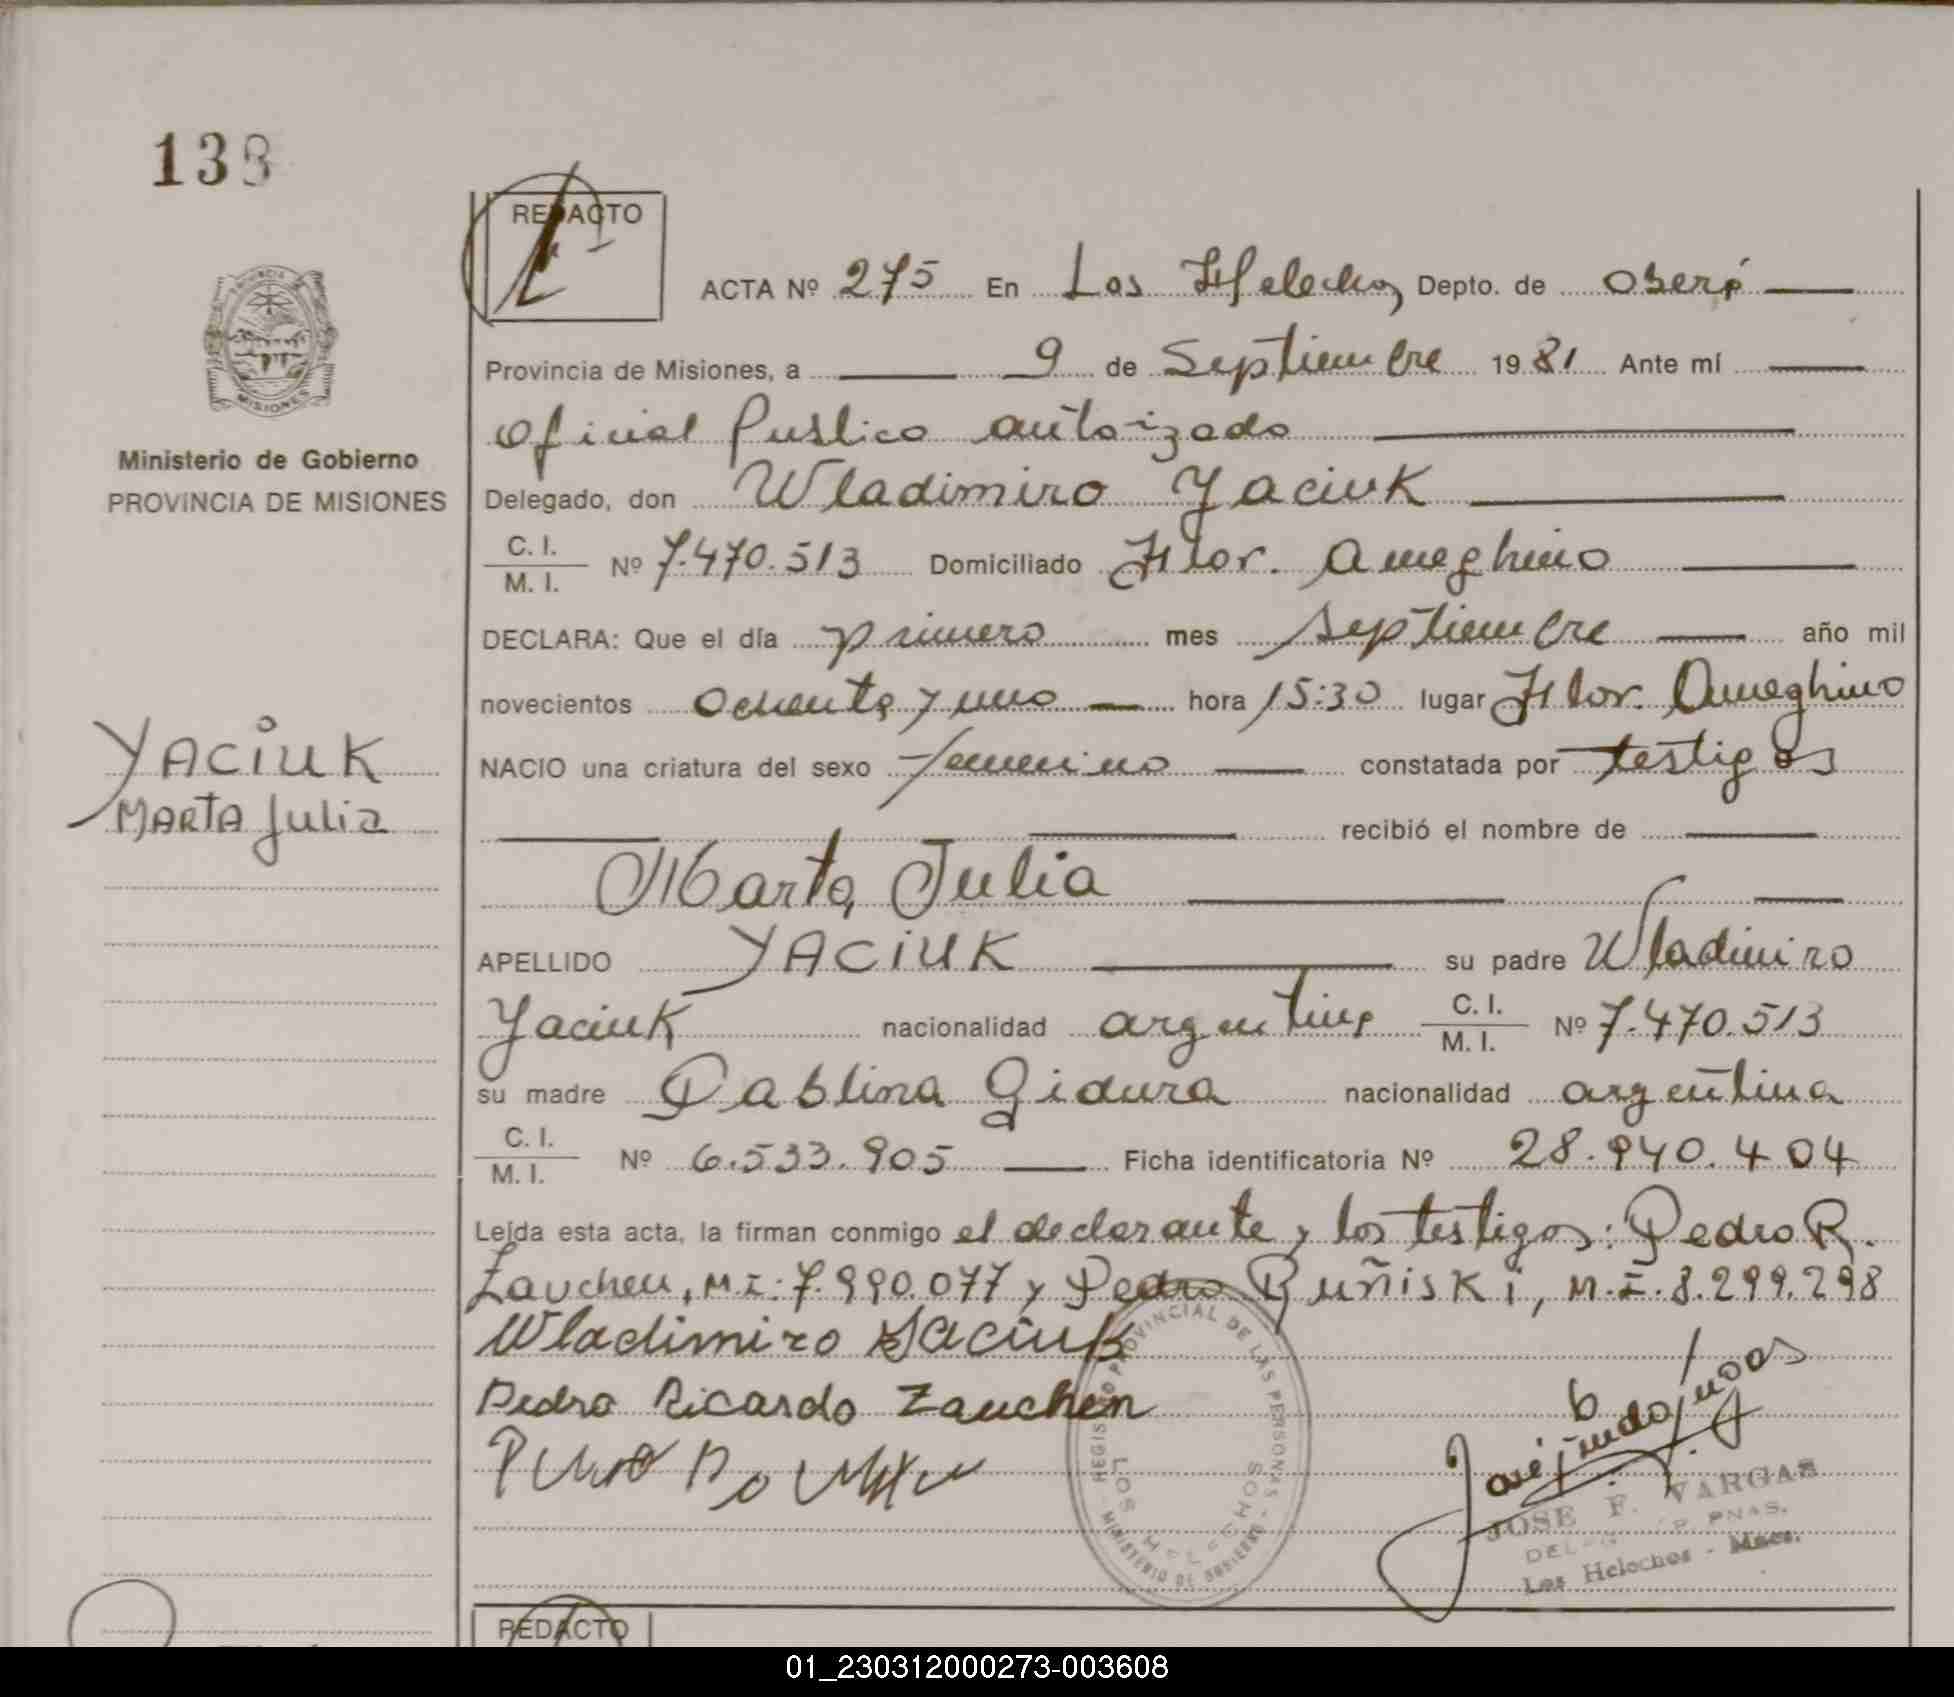 138
REDACTO
ACTA Nº 275 En Los Helechos Depto. de Oberá
Provincia de Misiones, a 9 de Septiembre 1981 Ante mí
Oficial Publico autorizado
Delegado, don Wladimiro Yaciuk
C. I.
M. I. Nº 7.470.513 Domiciliado Flor. Ameghino
DECLARA: Que el día primero mes septiembre año mil
novecientos ochenta y uno hora 15:30 lugar Flor. Ameghino
NACIO una criatura del sexo femenino constatada por testigos
recibió el nombre de
Marta Julia
APELLIDO YACIUK su padre Wladimiro
Yaciuk nacionalidad argentina C. I.
M. I. Nº 7.470.513
su madre Pablina Gidura nacionalidad argentina
C. I.
M. I. Nº 6.533.905 Ficha identificatoria Nº 28.940.404
Leída esta acta, la firman conmigo el declarante y los testigos: Pedro R.
Zauchen, M.I: 7.990.077 y Pedro Ruñiski, M.I. 8.299.298
Wladimiro Yaciuk
Pedro Ricardo Zauchen
REGISTRO PROVINCIAL DE LAS PERSONAS
LOS HELECHOS
MINISTERIO DE GOBIERNO
JOSE F. VARGAS
Los Helechos - Mnes.
PROVINCIA
MISIONES
Ministerio de Gobierno
PROVINCIA DE MISIONES
YACIUK
MARTA Julia
REDACTO
01_230312000273-003608